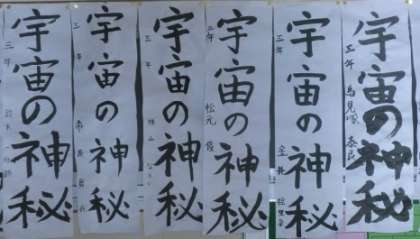 宇宙の神秘
三年
宇宙の神秘
三年
宇宙の神秘
三年
宇宙の神秘
三年 松元
宇宙の神秘
三年
宇宙の神秘
三年